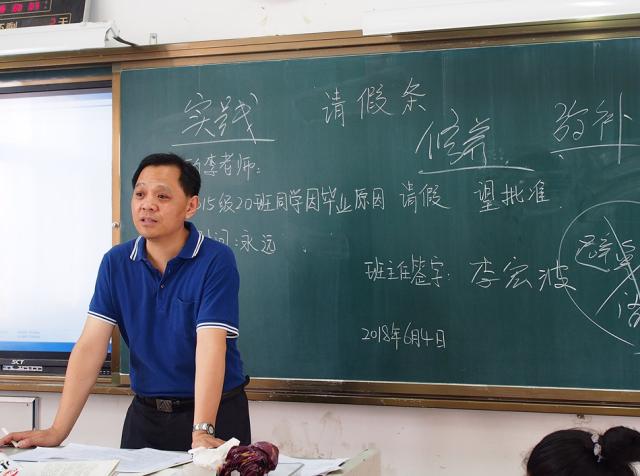 实践
请假条
修养
弥补
李老师:
15级20班同学因毕业原因 请假 望批准.
间:永远
班主任签字: 李宏波
2018年6月4日
SKT